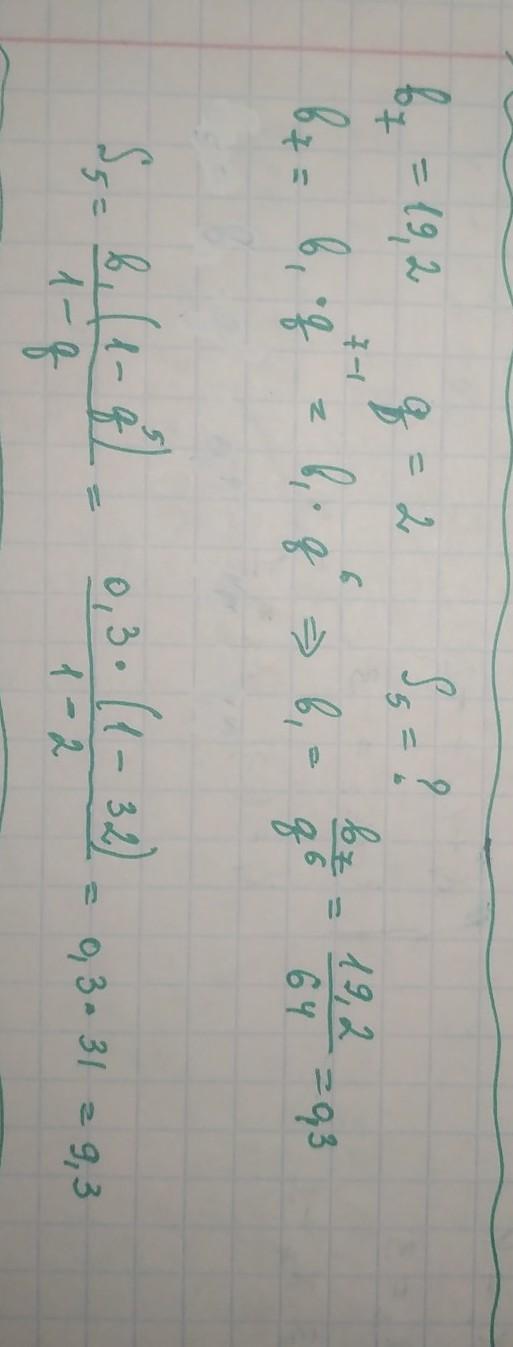 b₇ = 19,2 q = 2 S₅ = ?
b₇ = b₁ · q⁷⁻¹ = b₁ · q⁶ ⇒ b₁ = b₇/q⁶ = 19,2/64 = 0,3
S₅ = b₁(1 - q⁵)/(1 - q) = 0,3 · (1 - 32)/(1 - 2) = 0,3 · 31 = 9,3